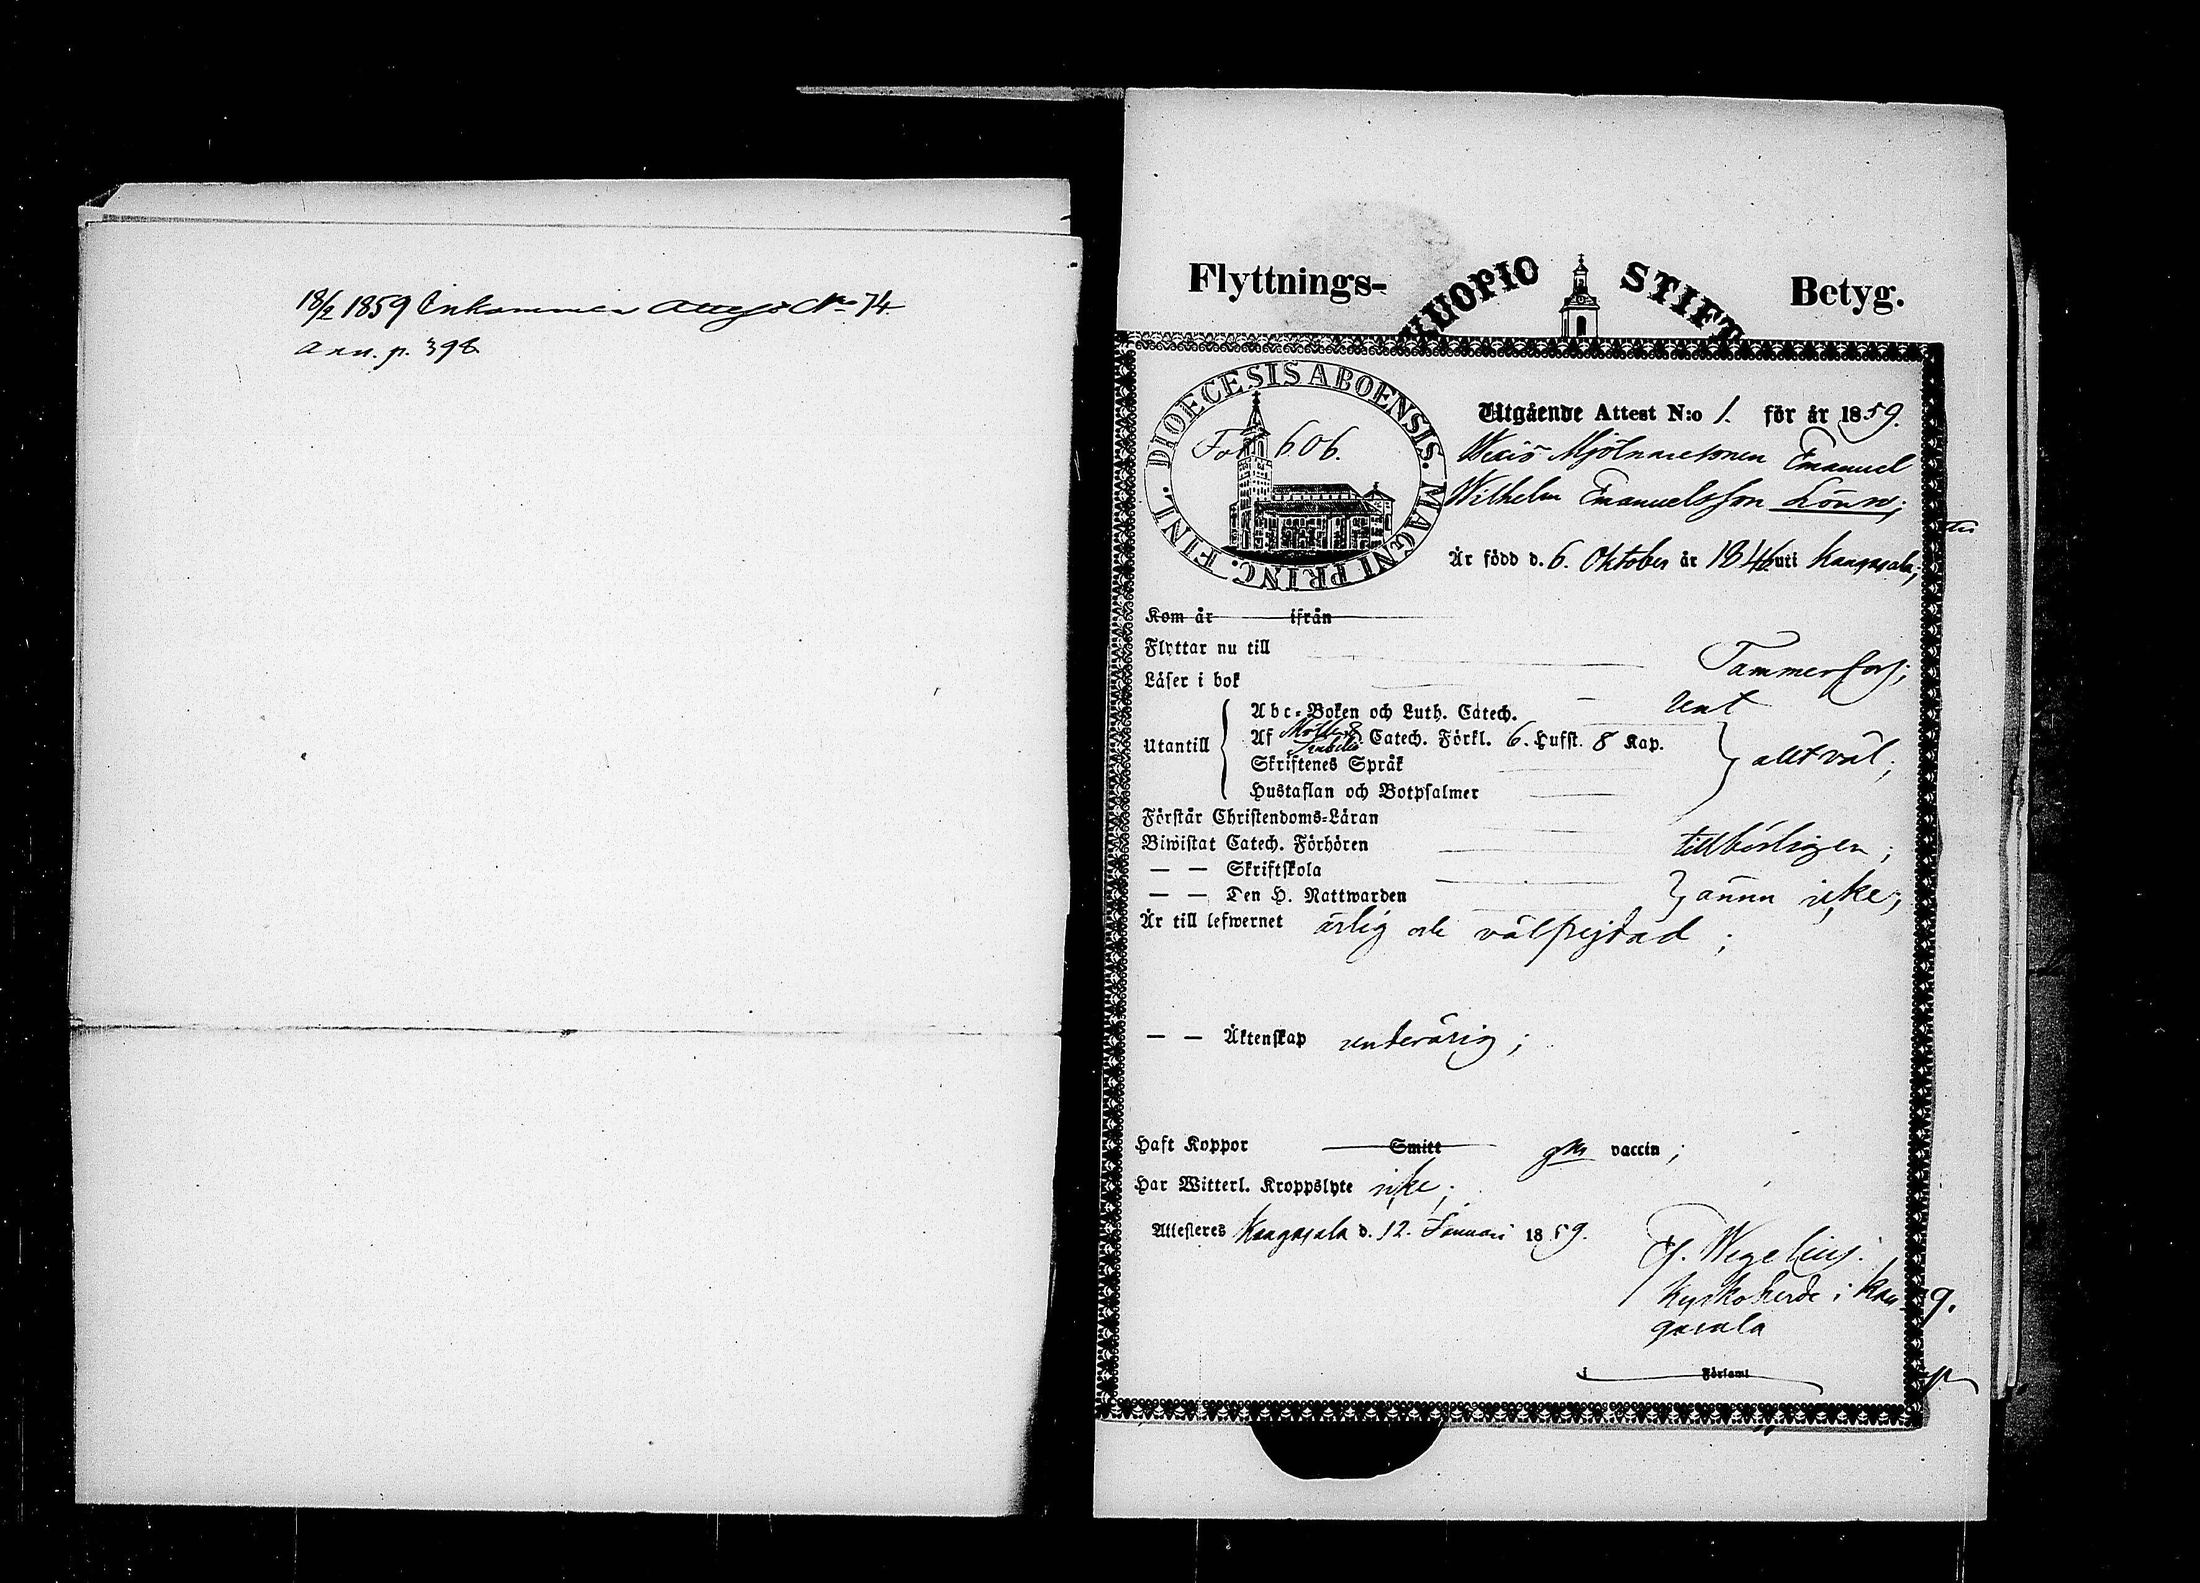 18/2 1859 Inkommen Attest No 74.
Ann. p. 398
Flyttnings- KUOPIO STIFT Betyg.
DIOECESIS ABOENSIS. MAGNI PRINC. FINL.
Fol 606.
Utgående Attest N:o 1. för år 1859.
Mjölnaresonen Emanuel
Wilhelm Emanuelsson Lönn;
Är född d. 6. Oktober år 1846 uti Kangasala;
Kom år ifrån
Flyttar nu till Tammerfors;
Läser i bok rent
Abc-Boken och Luth. Catech.
Utantill Af Catech. Förkl. 6. Hufst. 8 Kap. allt väl;
Skriftenes Språk
Hustaflan och Botpsalmer
Förstår Christendoms-Läran
Biwistat Catech. Förhören tillbörligen;
— — Skriftskola
— — Den H. Nattwarden ännu icke;
Är till lefwernet ärlig och välfrejdad;
— — Äktenskap underårig;
Haft Koppor Smitt vaccin;
Har Witterl. Kroppslyte icke;
Attesteras Kangasala d. 12. Januari 1859.
Wegelius.
Kyrkoherde i Kan-
gasala
i Församl